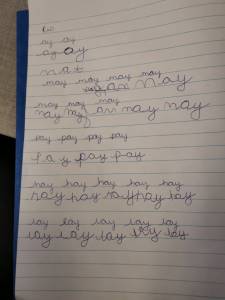 ay ay
ay a ay
nat
may may may may
an nay
may may may
nay nay an nay nay
pay pay pay pay
pay pay pay
hay hay hay hay hay
hay hay hay hay hay
lay lay lay lay lay
lay lay lay lay lay